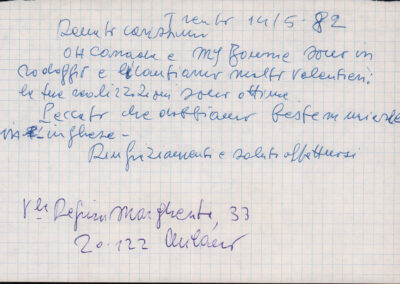 Trento 14/5-82
Renato carissimo
Oh Canada e My Bonnie sono in
rodaggio e li cantiamo molto volentieri.
le tue realizzazioni sono ottime.
Peccato che dobbiamo
in inglese -
Ringraziamenti e saluti affettuosi
V.le Regina Margherita, 33
20.122 Milano